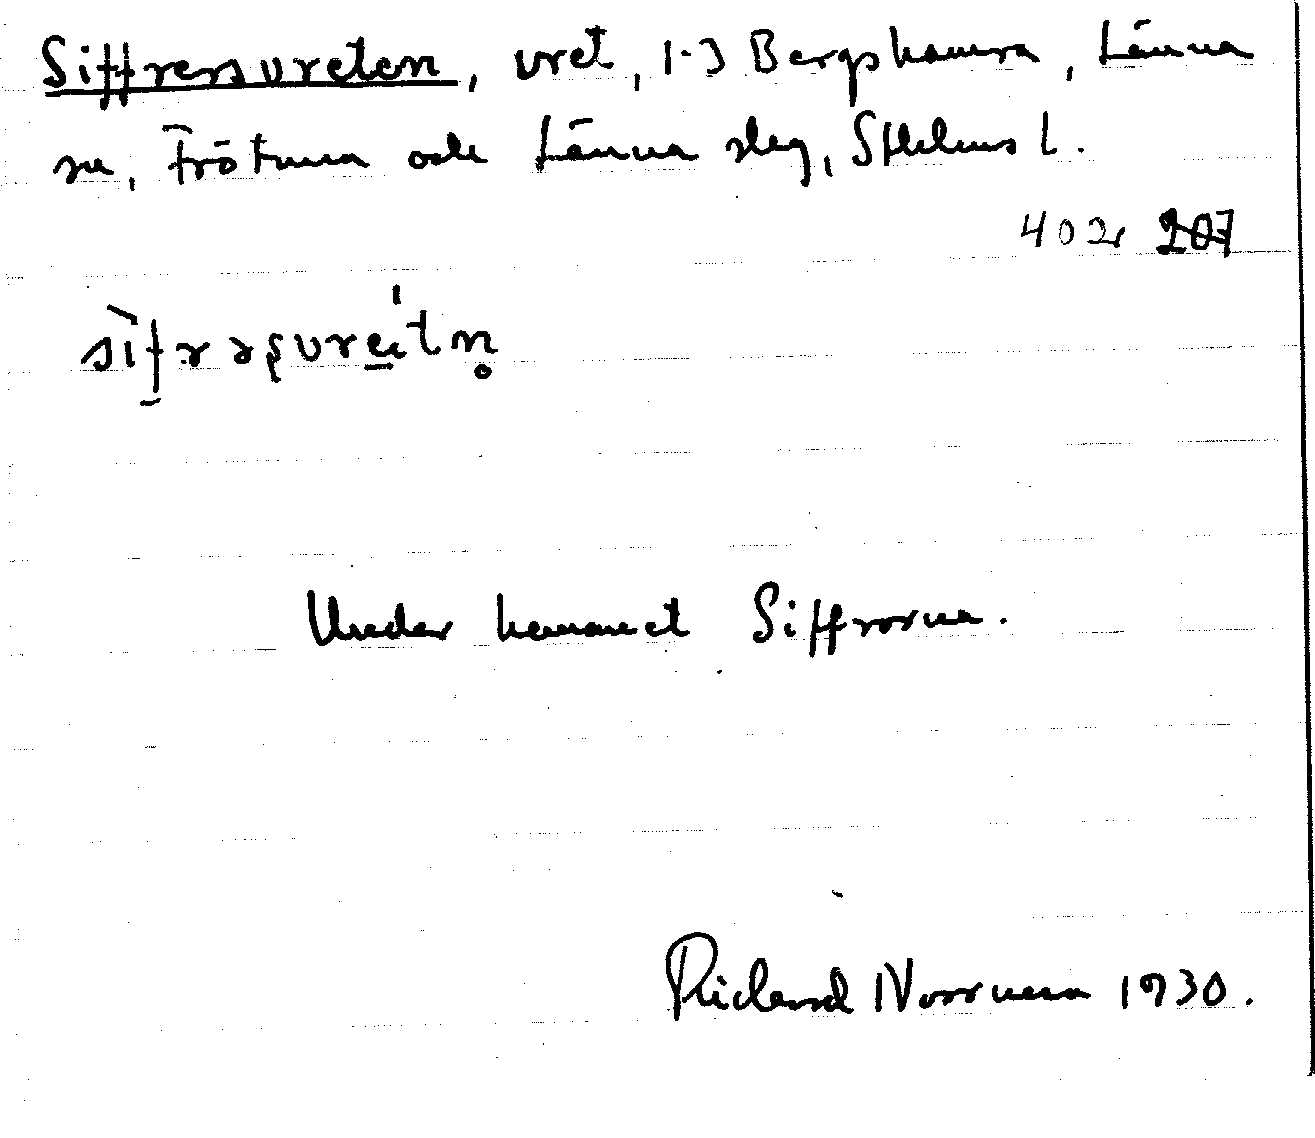 Siffrersvreten, vret, 1-3 Bergshamra, Länna
sn, Frötuna och Länna slg, Sthlms l.
402 207
Under hemmanet Siffrorna.
Rickard Norrman 1930.